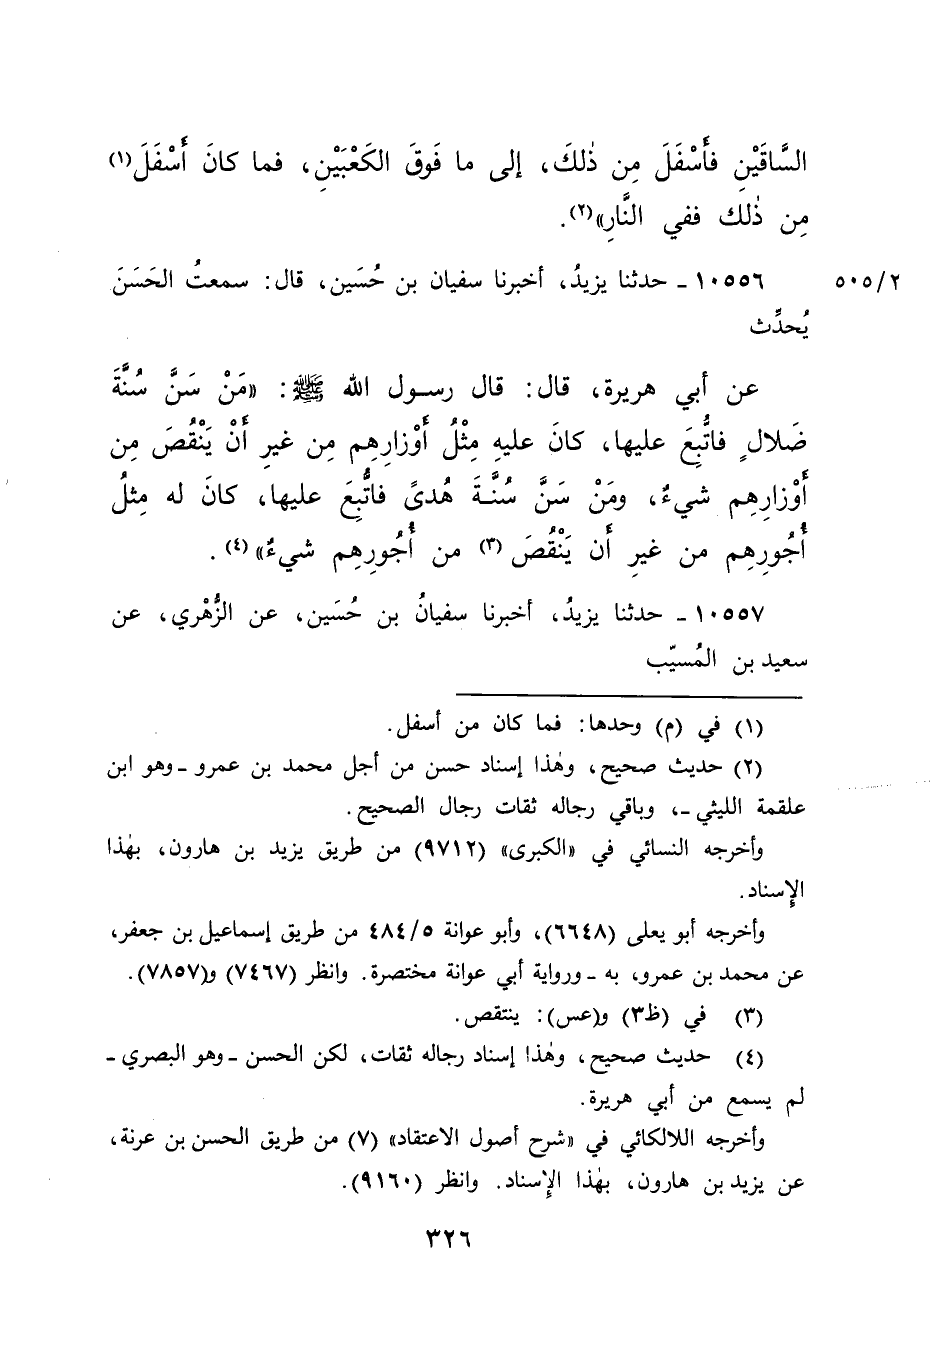 السَّاقَيْنِ فأَسْفَلَ مِن ذٰلكَ، إلى ما فَوقَ الكَعْبَيْنِ، فما كانَ أَسْفَلَ(١)
مِن ذٰلك ففي النَّارِ»(٢).
٥٠٥/٢ ١٠٥٥٦ ـ حدثنا يزيدُ، أخبرنا سفيان بن حُسَين، قال: سمعتُ الحَسَنَ
يُحدِّث
عن أبي هريرة، قال: قال رسول الله ﷺ: «مَنْ سَنَّ سُنَّةَ
ضَلالٍ فاتُّبِعَ عليها، كانَ عليهِ مِثْلُ أَوْزارِهِم مِن غيرِ أَنْ يَنْقُصَ مِن
أَوْزارِهِم شيءٌ، ومَنْ سَنَّ سُنَّةَ هُدىً فاتُّبِعَ عليها، كانَ له مِثلُ
أُجُورِهِم من غيرِ أَن يَنْقُصَ(٣) من أُجُورِهِم شيءٌ»(٤).
١٠٥٥٧ ـ حدثنا يزيدُ، أخبرنا سفيانُ بن حُسَين، عن الزُّهْري، عن
سعيد بن المُسيّب
(١) في (م) وحدها: فما كان من أسفل.
(٢) حديث صحيح، وهٰذا إسناد حسن من أجل محمد بن عمرو ـ وهو ابن
علقمة الليثي ـ، وباقي رجاله ثقات رجال الصحيح.
وأخرجه النسائي في «الكبرى» (٩٧١٢) من طريق يزيد بن هارون، بهٰذا
الإسناد.
وأخرجه أبو يعلى (٦٦٤٨)، وأبو عوانة ٤٨٤/٥ من طريق إسماعيل بن جعفر،
عن محمد بن عمرو، به ـ ورواية أبي عوانة مختصرة. وانظر (٧٤٦٧) و(٧٨٥٧).
(٣) في (ظ٣) و(عس): ينتقص.
(٤) حديث صحيح، وهٰذا إسناد رجاله ثقات، لكن الحسن ـ وهو البصري ـ
لم يسمع من أبي هريرة.
وأخرجه اللالكائي في «شرح أصول الاعتقاد» (٧) من طريق الحسن بن عرنة،
عن يزيد بن هارون، بهٰذا الإسناد. وانظر (٩١٦٠).
٣٢٦